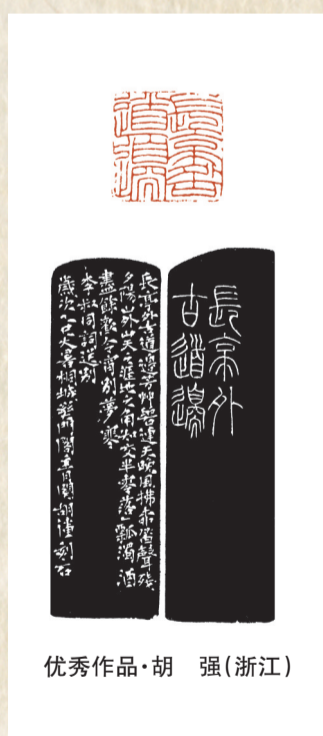 長亭外
古道邊
長亭外
古道邊
長亭外古道邊芳艸碧連天晚風拂柳笛聲殘
夕陽山外山天之涯地之角知交半零落一瓢濁酒
盡餘歡今宵別夢寒
李叔同詞送別
歲次乙巳大暑桐城 刻石
优秀作品·胡　强(浙江)